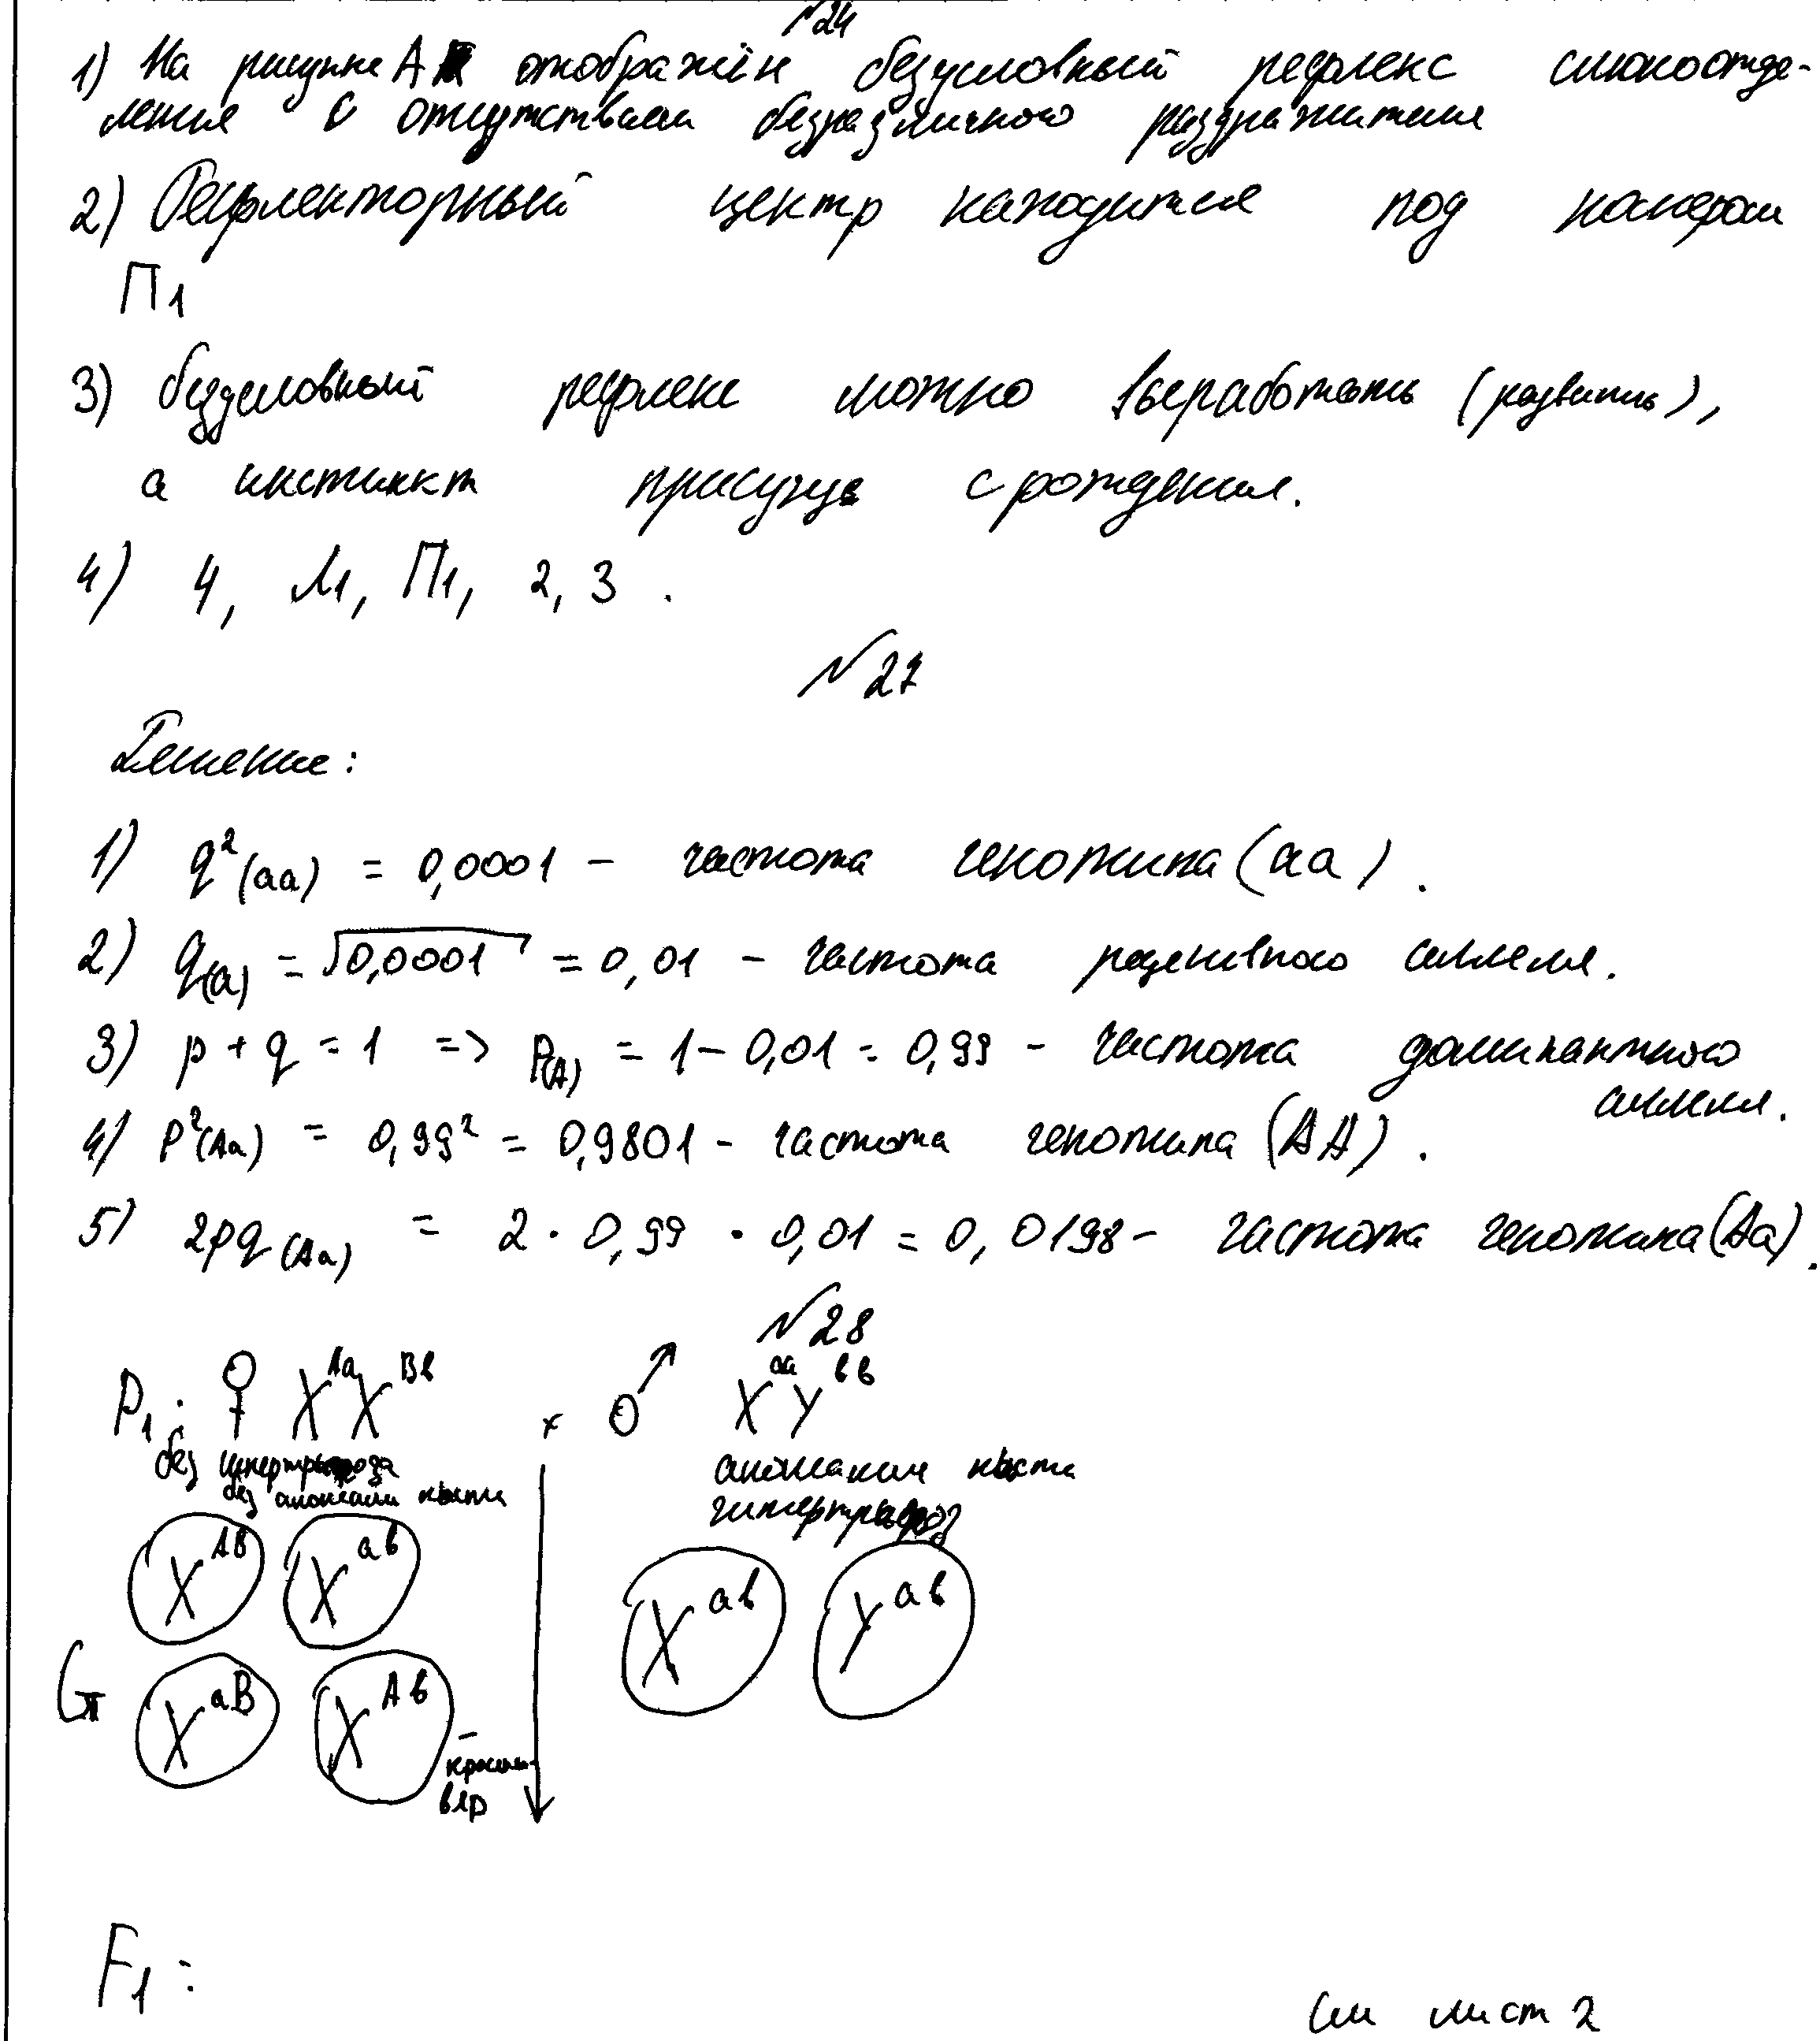 №24
1) На рисунке А отображён безусловный рефлекс слюноотде-
ления с отсутствием безразличного раздражителя
2) Рефлекторный центр находится под номером
П1
3) безусловный рефлекс можно выработать (развить),
а инстинкт присущ с рождения.
4) 4, Л1, П1, 2, 3 .
№27
Решение:
1) q²(аа) = 0,0001 - частота генотипа (аа) .
2) q(а) = √0,0001 = 0,01 - частота рецесивного аллеля.
3) p + q = 1 => p(А) = 1 - 0,01 = 0,99 - частота доминантного
аллеля.
4) p²(Аа) = 0,99² = 0,9801 - частота генотипа (АА) .
5) 2pq(Аа) = 2 · 0,99 · 0,01 = 0,0198 - частота генотипа (Аа) .
№28
P₁: ♀ X^Аа X^Вв × ♂ X^аа Y^вв
без
без аномалии кисти
аномалия кисти
X^АВ X^ав
X^ав Y^ав
G
X^аВ X^Ав -
вер
F₁:
см лист 2